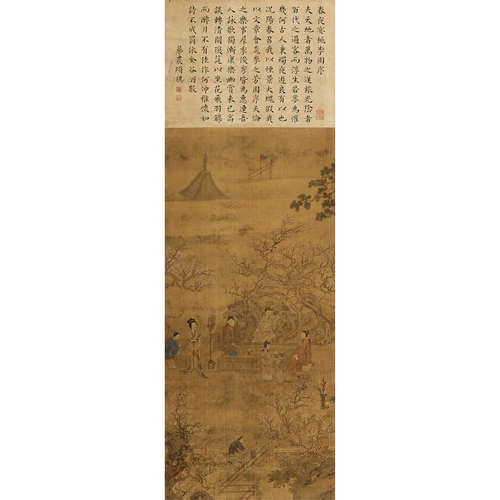 春夜宴桃李園序
夫天地者萬物之逆旅光陰者
百代之過客而浮生若夢為懽
幾何古人秉燭夜遊良有以也
況陽春召我以煙景大塊假我
以文章會桃李之芳園序天倫
之樂事羣季俊秀皆為惠連吾
人詠歌獨慚康樂幽賞未已高
談轉清開瓊筵以坐花飛羽觴
而醉月不有佳作何伸雅懷如
詩不成罰依金谷酒數